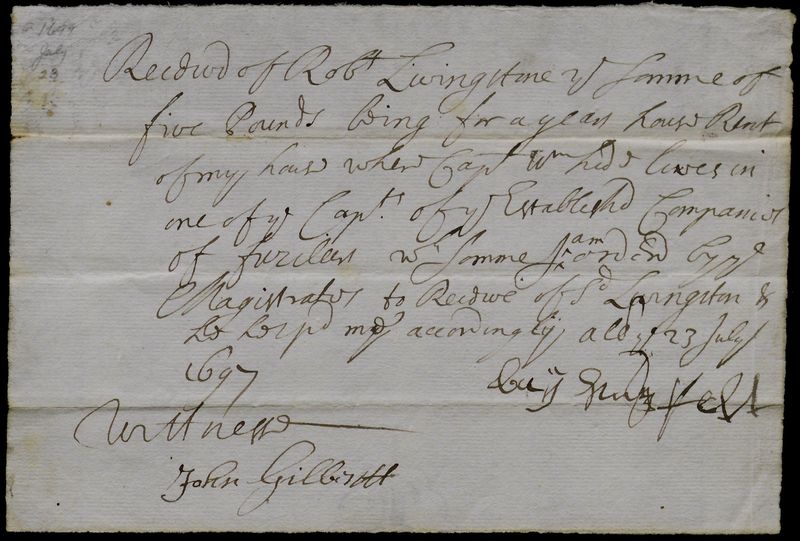 1697
July
23
Receivd of Robt Livingstone ye Somme of
five Pounds being for a years house Rent
of my house where Capt Wm hide lives in
one of ye Capts of ye Establishd Companies
of fuzileers wh Somme I am orderd by ye
Magistrates to Receive of Sd Livingston &
he has pd me accordingly alby 23 July
1697
Wittnesse
John Gilbertt